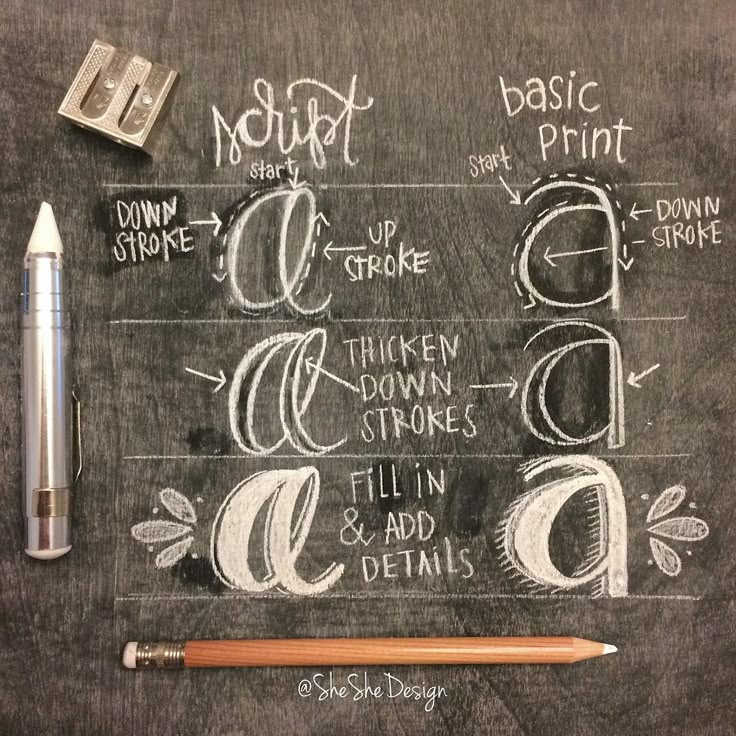 script
basic
print
start
start
DOWN
STROKE
UP
STROKE
DOWN
STROKE
a
a
THICKEN
DOWN
STROKES
a
a
FILL IN
& ADD
DETAILS
a
a
@SheSheDesign